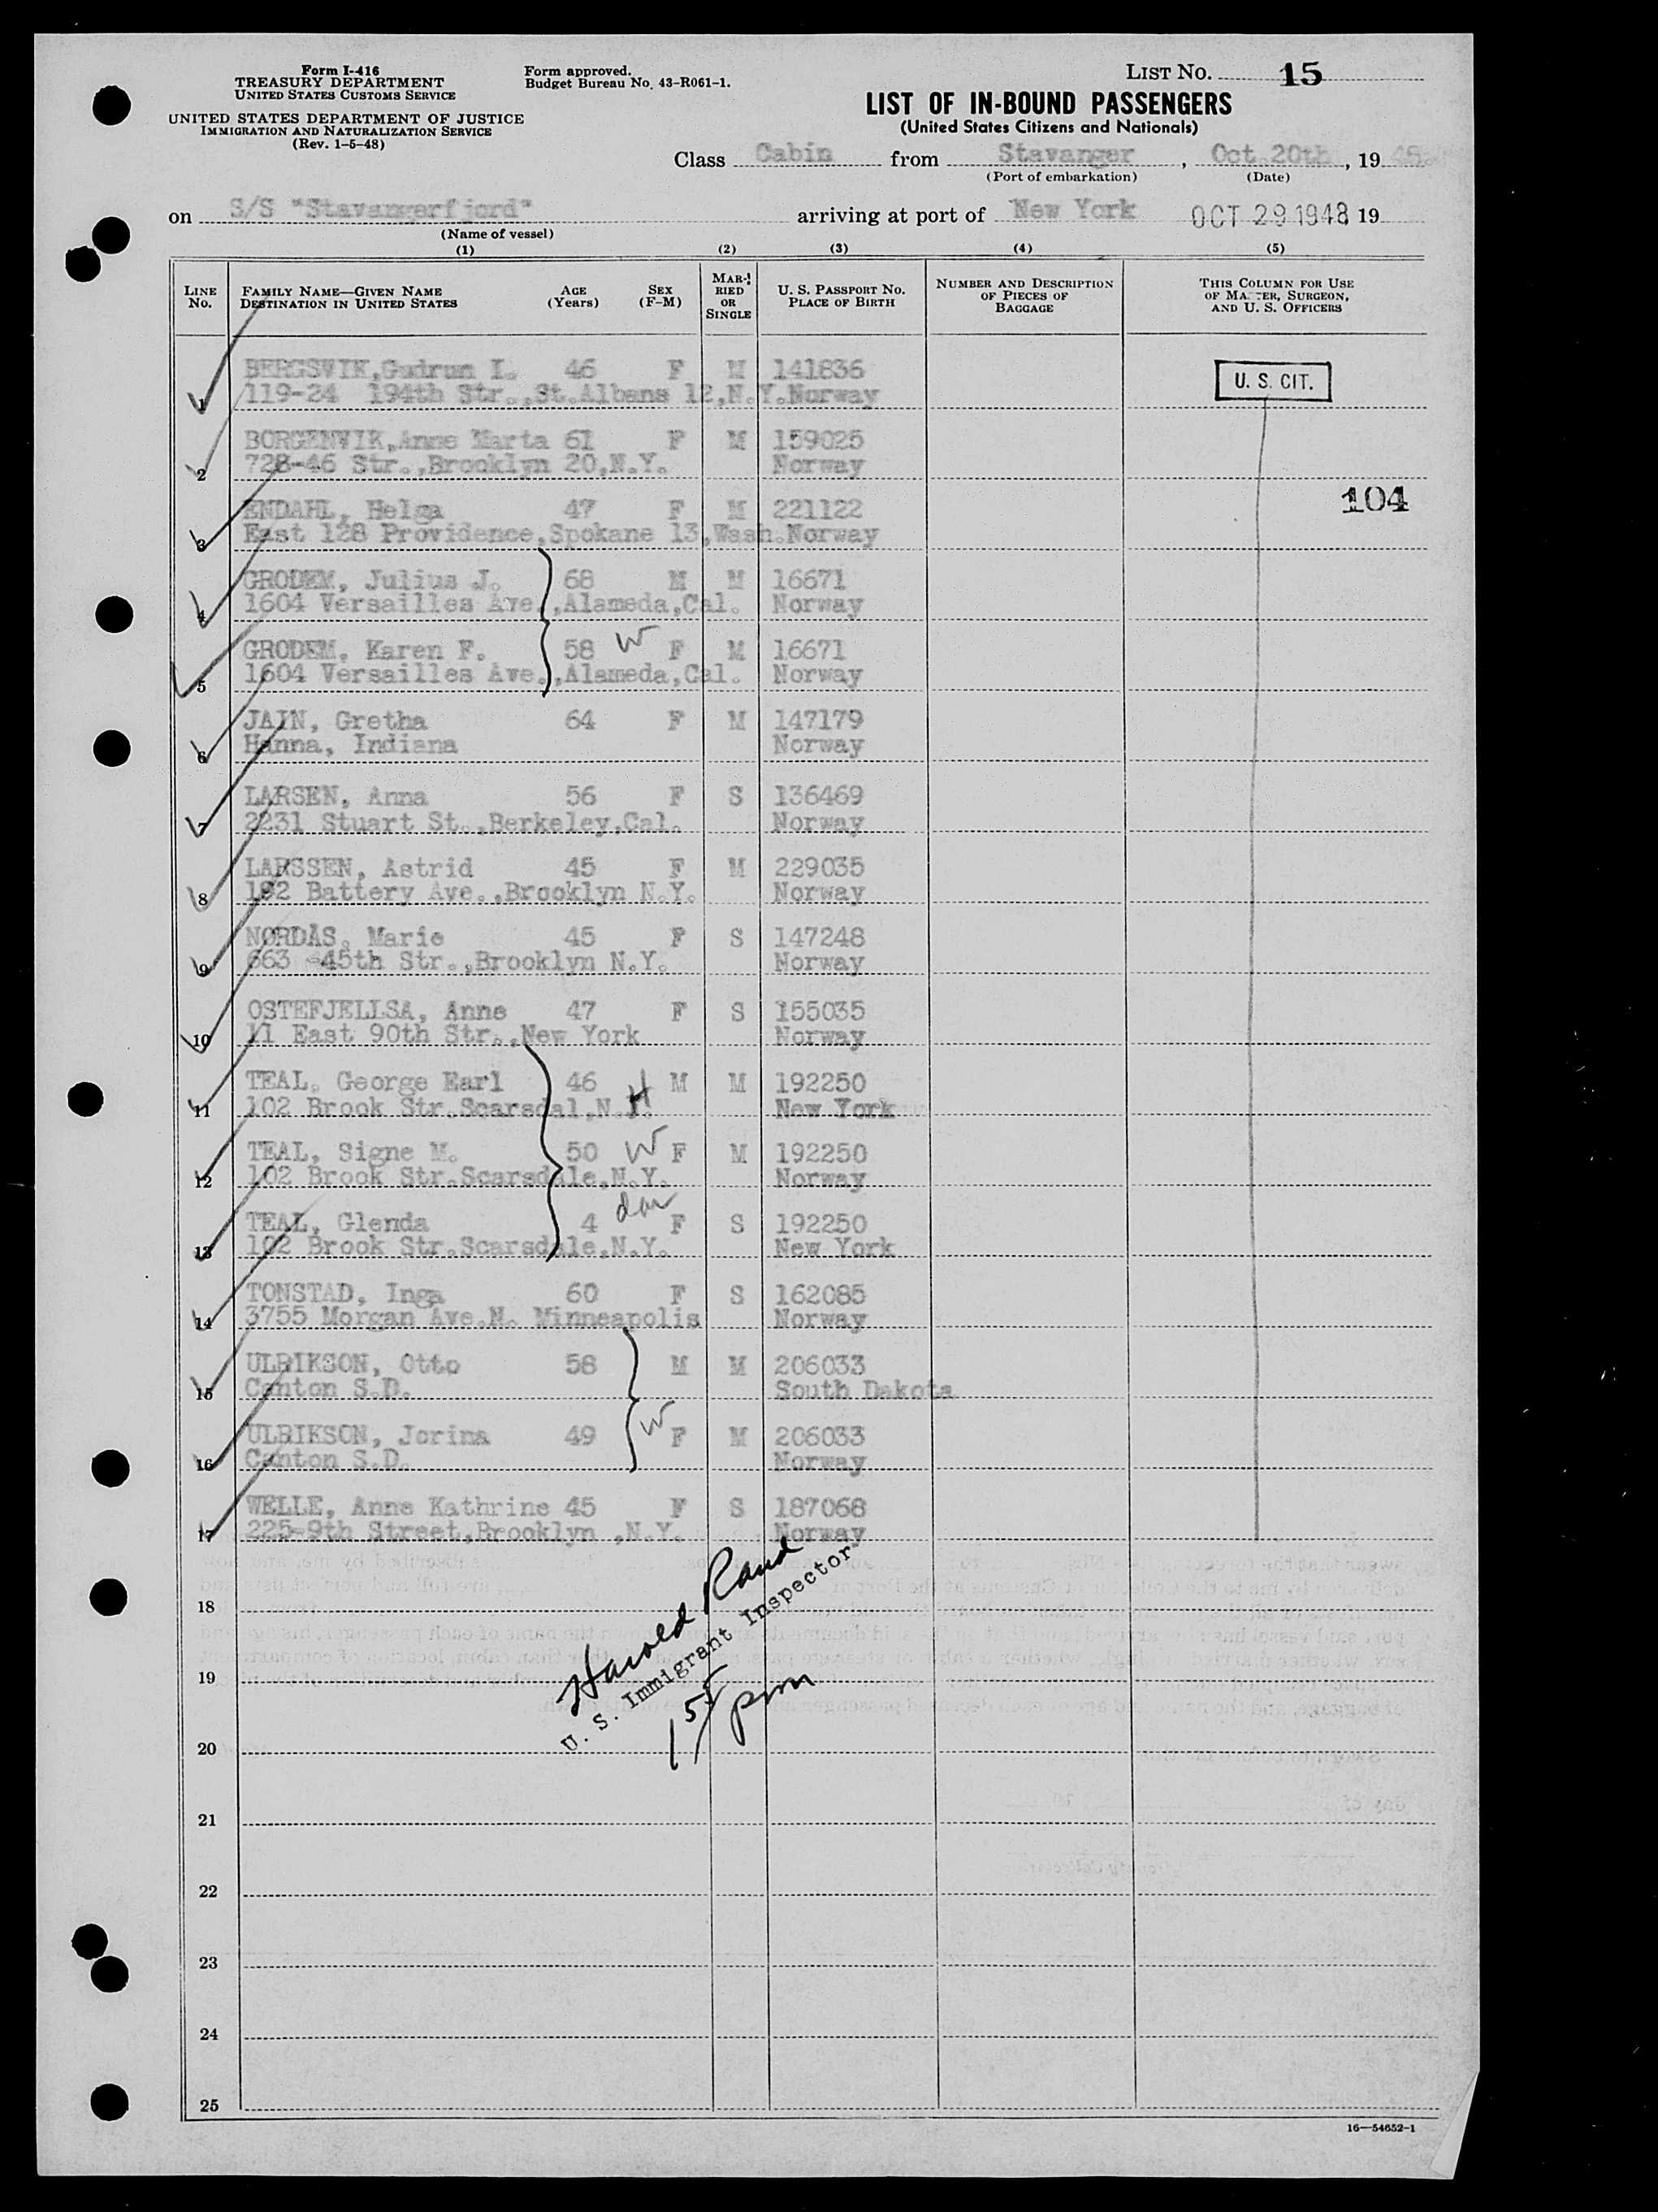 Form I-416
TREASURY DEPARTMENT
UNITED STATES CUSTOMS SERVICE
UNITED STATES DEPARTMENT OF JUSTICE
IMMIGRATION AND NATURALIZATION SERVICE
(Rev. 1-5-48)
Form approved.
Budget Bureau No. 43-R061-1.
LIST No. 15
LIST OF IN-BOUND PASSENGERS
(United States Citizens and Nationals)
Class Cabin from Stavanger, Oct. 20th, 19
(Port of embarkation) (Date)
on S/S "Stavangerfjord" arriving at port of New York OCT 29 1948 19
(Name of vessel)
(1) (2) (3) (4) (5)
LINE No. FAMILY NAME—GIVEN NAME DESTINATION IN UNITED STATES AGE (Years) SEX (F-M) MARRIED OR SINGLE U. S. PASSPORT No. PLACE OF BIRTH NUMBER AND DESCRIPTION OF PIECES OF BAGGAGE THIS COLUMN FOR USE OF MASTER, SURGEON, AND U. S. OFFICERS
BERGSVIK,Gudrun I. 46 F M 141836 U. S. CIT.
1 119-24 194th Str.,St.Albans 12,N.Y.Norway
BORGENVIK,Anne Marta 61 F M 159025
2 728-46 Str.,Brooklyn 20,N.Y. Norway
ENDAHL, Helga 47 F M 221122 104
3 East 128 Providence,Spokane 13,Wash.Norway
GRODEM, Julius J. 68 M M 16671
4 1604 Versailles Ave.,Alameda,Cal. Norway
GRODEM, Karen F. 58 W F M 16671
5 1604 Versailles Ave.,Alameda,Cal. Norway
JAIN, Gretha 64 F M 147179
6 Hanna, Indiana Norway
LARSEN, Anna 56 F S 136469
7 2231 Stuart St.,Berkeley,Cal. Norway
LARSSEN, Astrid 45 F M 229035
8 192 Battery Ave.,Brooklyn N.Y. Norway
NORDÅS, Marie 45 F S 147248
9 663 -45th Str.,Brooklyn N.Y. Norway
OSTEFJELLSA, Anne 47 F S 155035
10 11 East 90th Str.,New York Norway
TEAL, George Earl 46 H M M 192250
11 102 Brook Str.Scarsdal,N.Y. New York
TEAL, Signe M. 50 W F M 192250
12 102 Brook Str.Scarsdale,N.Y. Norway
TEAL, Glenda 4 dau F S 192250
13 102 Brook Str.Scarsdale,N.Y. New York
TONSTAD, Inga 60 F S 162085
14 3755 Morgan Ave.N. Minneapolis Norway
ULRIKSON, Otto 58 M M 206033
15 Canton S.D. South Dakota
ULRIKSON, Jorina 49 W F M 206033
16 Canton S.D. Norway
WELLE, Anne Kathrine 45 F S 187068
17 225-9th Street,Brooklyn ,N.Y. Norway
Harold Rand
U. S. Immigrant Inspector
1 55 pm
18
19
20
21
22
23
24
25
16—54652-1